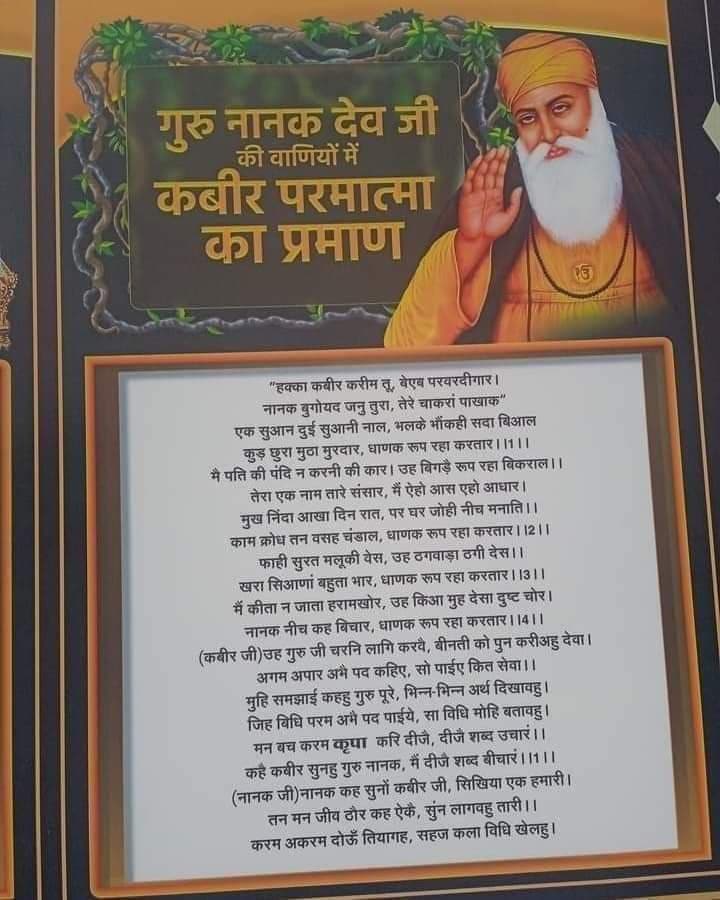 गुरु नानक देव जी
की वाणियों में
कबीर परमात्मा
का प्रमाण
"हक्का कबीर करीम तू, बेएब परवरदीगार।
नानक बुगोयद जनु तुरा, तेरे चाकरां पाखाक"
एक सुआन दुई सुआनी नाल, भलके भौंकही सदा बिआल
कुड़ छुरा मुठा मुरदार, धाणक रूप रहा करतार।।1।।
मै पति की पंदि न करनी की कार। उह बिगड़ै रूप रहा बिकराल।।
तेरा एक नाम तारे संसार, मैं ऐहो आस एहो आधार।
मुख निंदा आखा दिन रात, पर घर जोही नीच मनाति।।
काम क्रोध तन वसह चंडाल, धाणक रूप रहा करतार।।2।।
फाही सुरत मलूकी वेस, उह ठगवाड़ा ठगी देस।।
खरा सिआणां बहुता भार, धाणक रूप रहा करतार।।3।।
मैं कीता न जाता हरामखोर, उह किआ मुह देसा दुष्ट चोर।
नानक नीच कह बिचार, धाणक रूप रहा करतार।।4।।
(कबीर जी)उह गुरु जी चरनि लागि करवै, बीनती को पुन करीअहु देवा।
अगम अपार अभै पद कहिए, सो पाईए कित सेवा।।
मुहि समझाई कहहु गुरु पूरे, भिन्न-भिन्न अर्थ दिखावहु।
जिह बिधि परम अभै पद पाईये, सा विधि मोहि बतावहु।
मन बच करम कृपा करि दीजै, दीजै शब्द उचारं।।
कहै कबीर सुनहु गुरु नानक, मैं दीजै शब्द बीचारं।।1।।
(नानक जी)नानक कह सुनों कबीर जी, सिखिया एक हमारी।
तन मन जीव ठौर कह ऐकै, सुंन लागवहु तारी।।
करम अकरम दोऊँ तियागह, सहज कला विधि खेलहु।